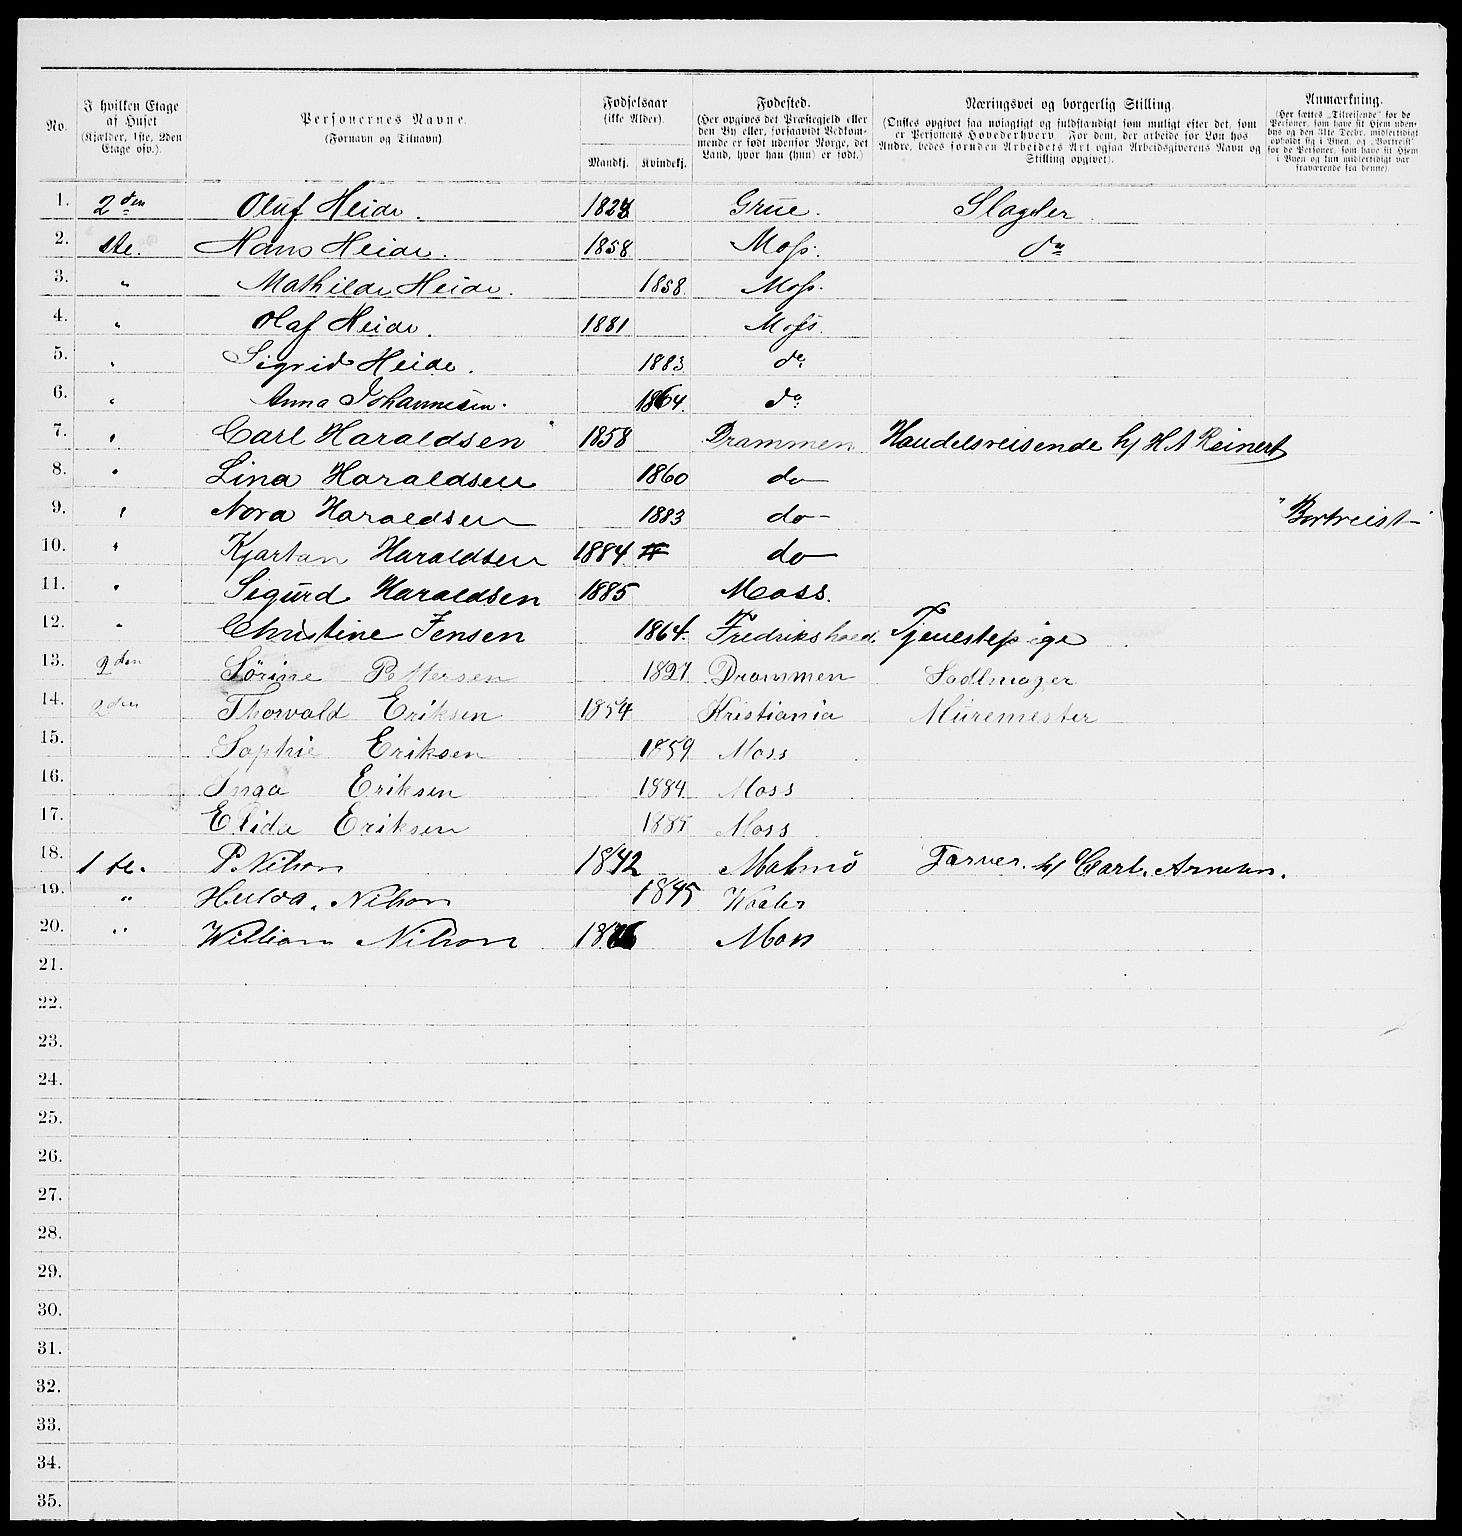 No. I hvilken Etage af Huset (Kjælder, 1ste, 2den Etage osv.). Personernes Navne. (Fornavn og Tilnavn). Fødselsaar (ikke Alder). Mandkj. Kvindekj. Fødested. (Her opgives det Præstegjeld eller den By eller, forsaavidt Vedkommende er født udenfor Norge, det Land, hvor han (hun) er født.) Næringsvei og borgerlig Stilling. (Ønskes opgivet saa nøiagtigt og fuldstændigt som muligt efter det, som er Personens Hovederhverv. For dem, der arbeide for Løn hos Andre, bedes foruden Arbeidets Art ogsaa Arbeidsgiverens Navn og Stilling opgivet). Anmærkning. (Her sættes „Tilreisende" for de Personer, som have sit Hjem udenbys og den 31te Decbr. midlertidigt opholdt sig i Byen, og „Bortreist" for de Personer, som have sit Hjem i Byen og kun midlertidigt var fraværende fra denne).
1. 2den Oluf Heide. Grue. Slagter
2. ste. Hans Heide. 1858 Moss. do
3. " Mathilde Heide. 1858. Moss.
4. " Olaf Heide. 1881 Moss.
5. " Sigrid Heide. 1883 do
6. " Anna Johannesen. 1864. do
7. " Carl Haraldsen 1858 Drammen Handelsreisende h/ H A Reinert
8. " Lina Haraldsen 1860 do
9. " Nora Haraldsen 1883 do "Bortreist"
10. " Kjartan Haraldsen 1884 do
11. " Sigurd Haraldsen 1885 Moss.
12. " Christine Jensen 1864. Fredrikshald Tjenestepige
13. 2den Sørine Pettersen 1827 Drammen Sadlmager
14. 2den Thorvald Eriksen 1854 Kristiania Muremester
15. Sophie Eriksen 1859 Moss
16. Inga Eriksen 1884 Moss
17. Elida Eriksen 1885 Moss
18. 1 te. P. Nilson 1842 Malmö Farver. h/ Carl. Arnesen.
19. " Hulda. Nilson 1845 Waaler
20. " William Nilson Moss
21.
22.
23.
24.
25.
26.
27.
28.
29.
30.
31.
32.
33.
34.
35.